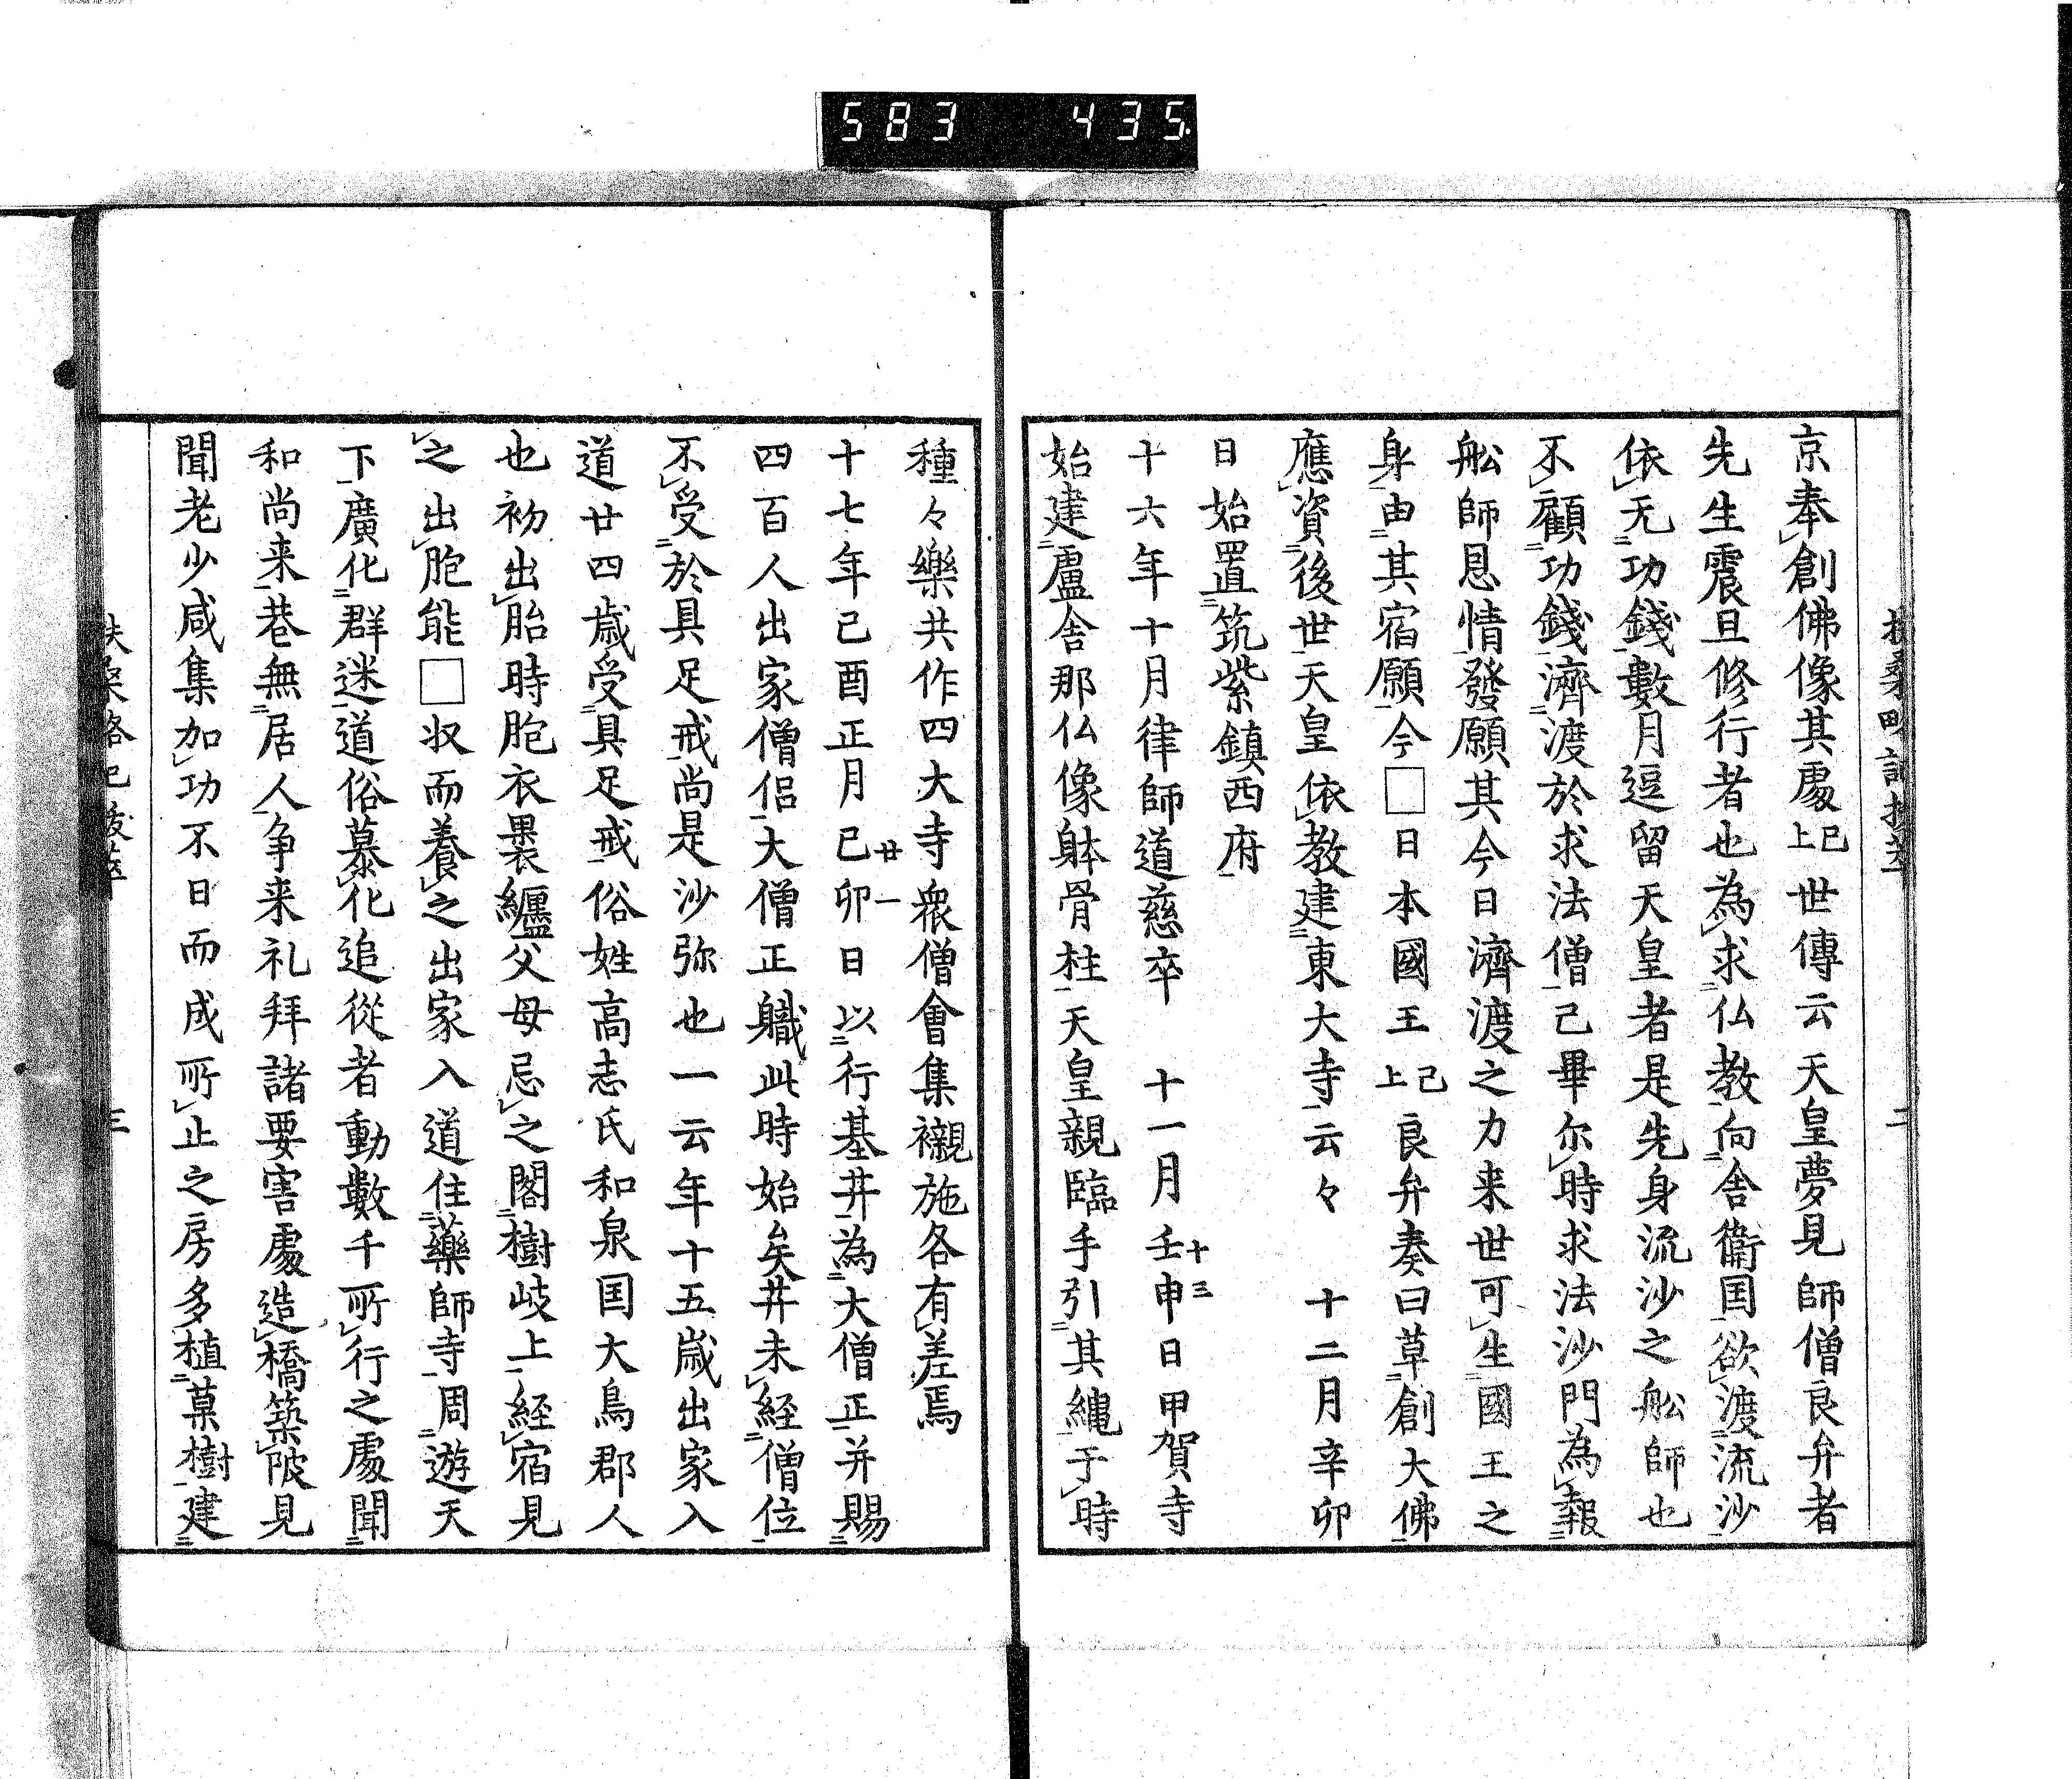 583 435
京奉創佛像其處已上世傳云天皇夢見師僧良弁者
先生震旦修行者也為求仏教向舎衛国欲渡流沙
依无功錢數月逗留天皇者是先身流沙之舩師也
不顧功錢濟渡於求法僧已畢尓時求法沙門為報
舩師恩情發願其今日濟渡之力来世可生國王之
身由其宿願今□日本國王已上良弁奏曰草創大佛
應資後世天皇依教建東大寺云々　十二月辛卯
日始置筑紫鎮西府
十六年十月律師道慈卒　十一月壬申十三日甲賀寺
始建盧舎那仏像躰骨柱天皇親臨手引其繩于時
種々樂共作四大寺衆僧會集襯施各有差焉
十七年己酉正月己卯廿一日以行基井為大僧正并賜
四百人出家僧侶大僧正軄此時始矣井未經僧位
不受於具足戒尚是沙弥也一云年十五歳出家入
道廿四歳受具足戒俗姓高志氏和泉国大鳥郡人
也初出胎時胞衣裹纒父母忌之閣樹岐上經宿見
之出胞能□収而養之出家入道住藥師寺周遊天
下廣化群迷道俗慕化追從者動數千所行之處聞
和尚来巷無居人争来礼拜諸要害處造橋築陂見
聞老少咸集加功不日而成所止之房多植菓樹建
扶桑略記抜萃　三